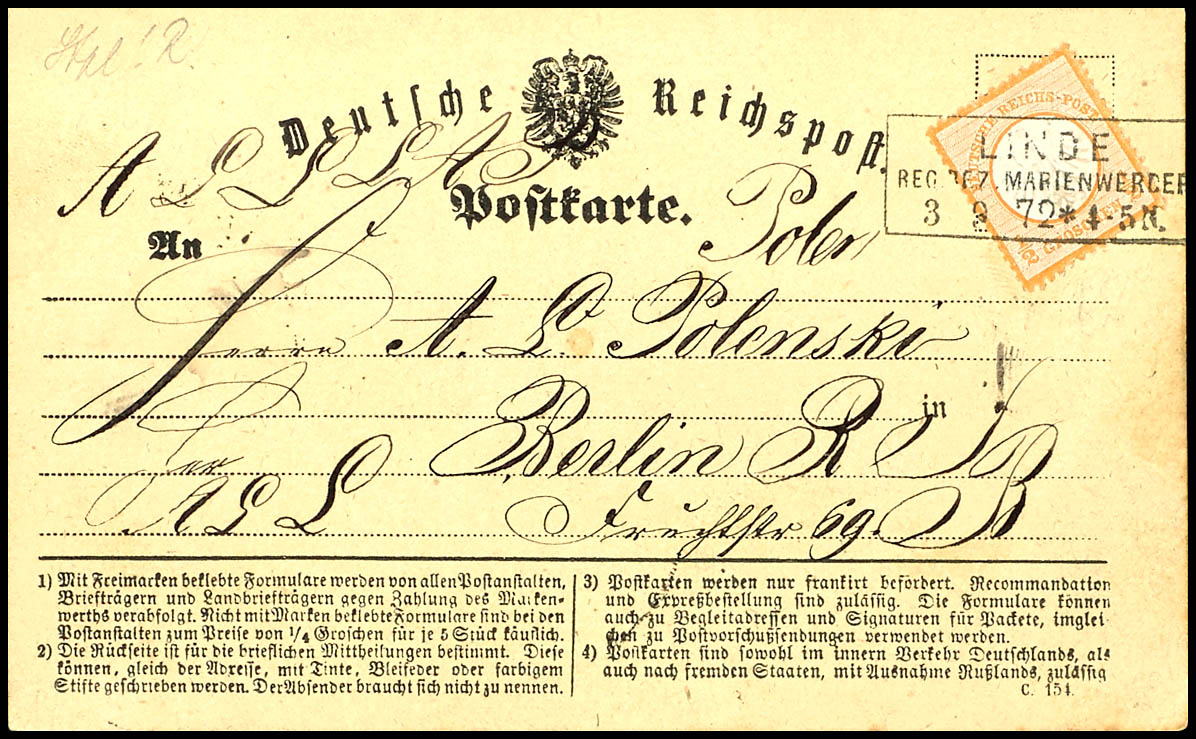 Stpl! R.
Deutsche Reichspost.
DEUTSCHE REICHS-POST
1/2 GROSCHEN
LINDE
REG. BEZ. MARIENWERDER
3 9 72 * 4-5 N.
A L L L A
Postkarte.
Polen
An
Herrn A. L. Polenski
in
Berlin R
A L L
Fruchtstr 69. B
1) Mit Freimarken beklebte Formulare werden von allen Postanstalten,
Briefträgern und Landbriefträgern gegen Zahlung des Marken-
werths verabfolgt. Nicht mit Marken beklebte Formulare sind bei den
Postanstalten zum Preise von 1/4 Groschen für je 5 Stück käuflich.
2) Die Rückseite ist für die brieflichen Mittheilungen bestimmt. Diese
können, gleich der Adresse, mit Tinte, Bleifeder oder farbigem
Stifte geschrieben werden. Der Absender braucht sich nicht zu nennen.
3) Postkarten werden nur frankirt befördert. Recommandation
und Expreßbestellung sind zulässig. Die Formulare können
auch zu Begleitadressen und Signaturen für Packete, imglei-
chen zu Postvorschußsendungen verwendet werden.
4) Postkarten sind sowohl im innern Verkehr Deutschlands, als
auch nach fremden Staaten, mit Ausnahme Rußlands, zulässig
C. 154.